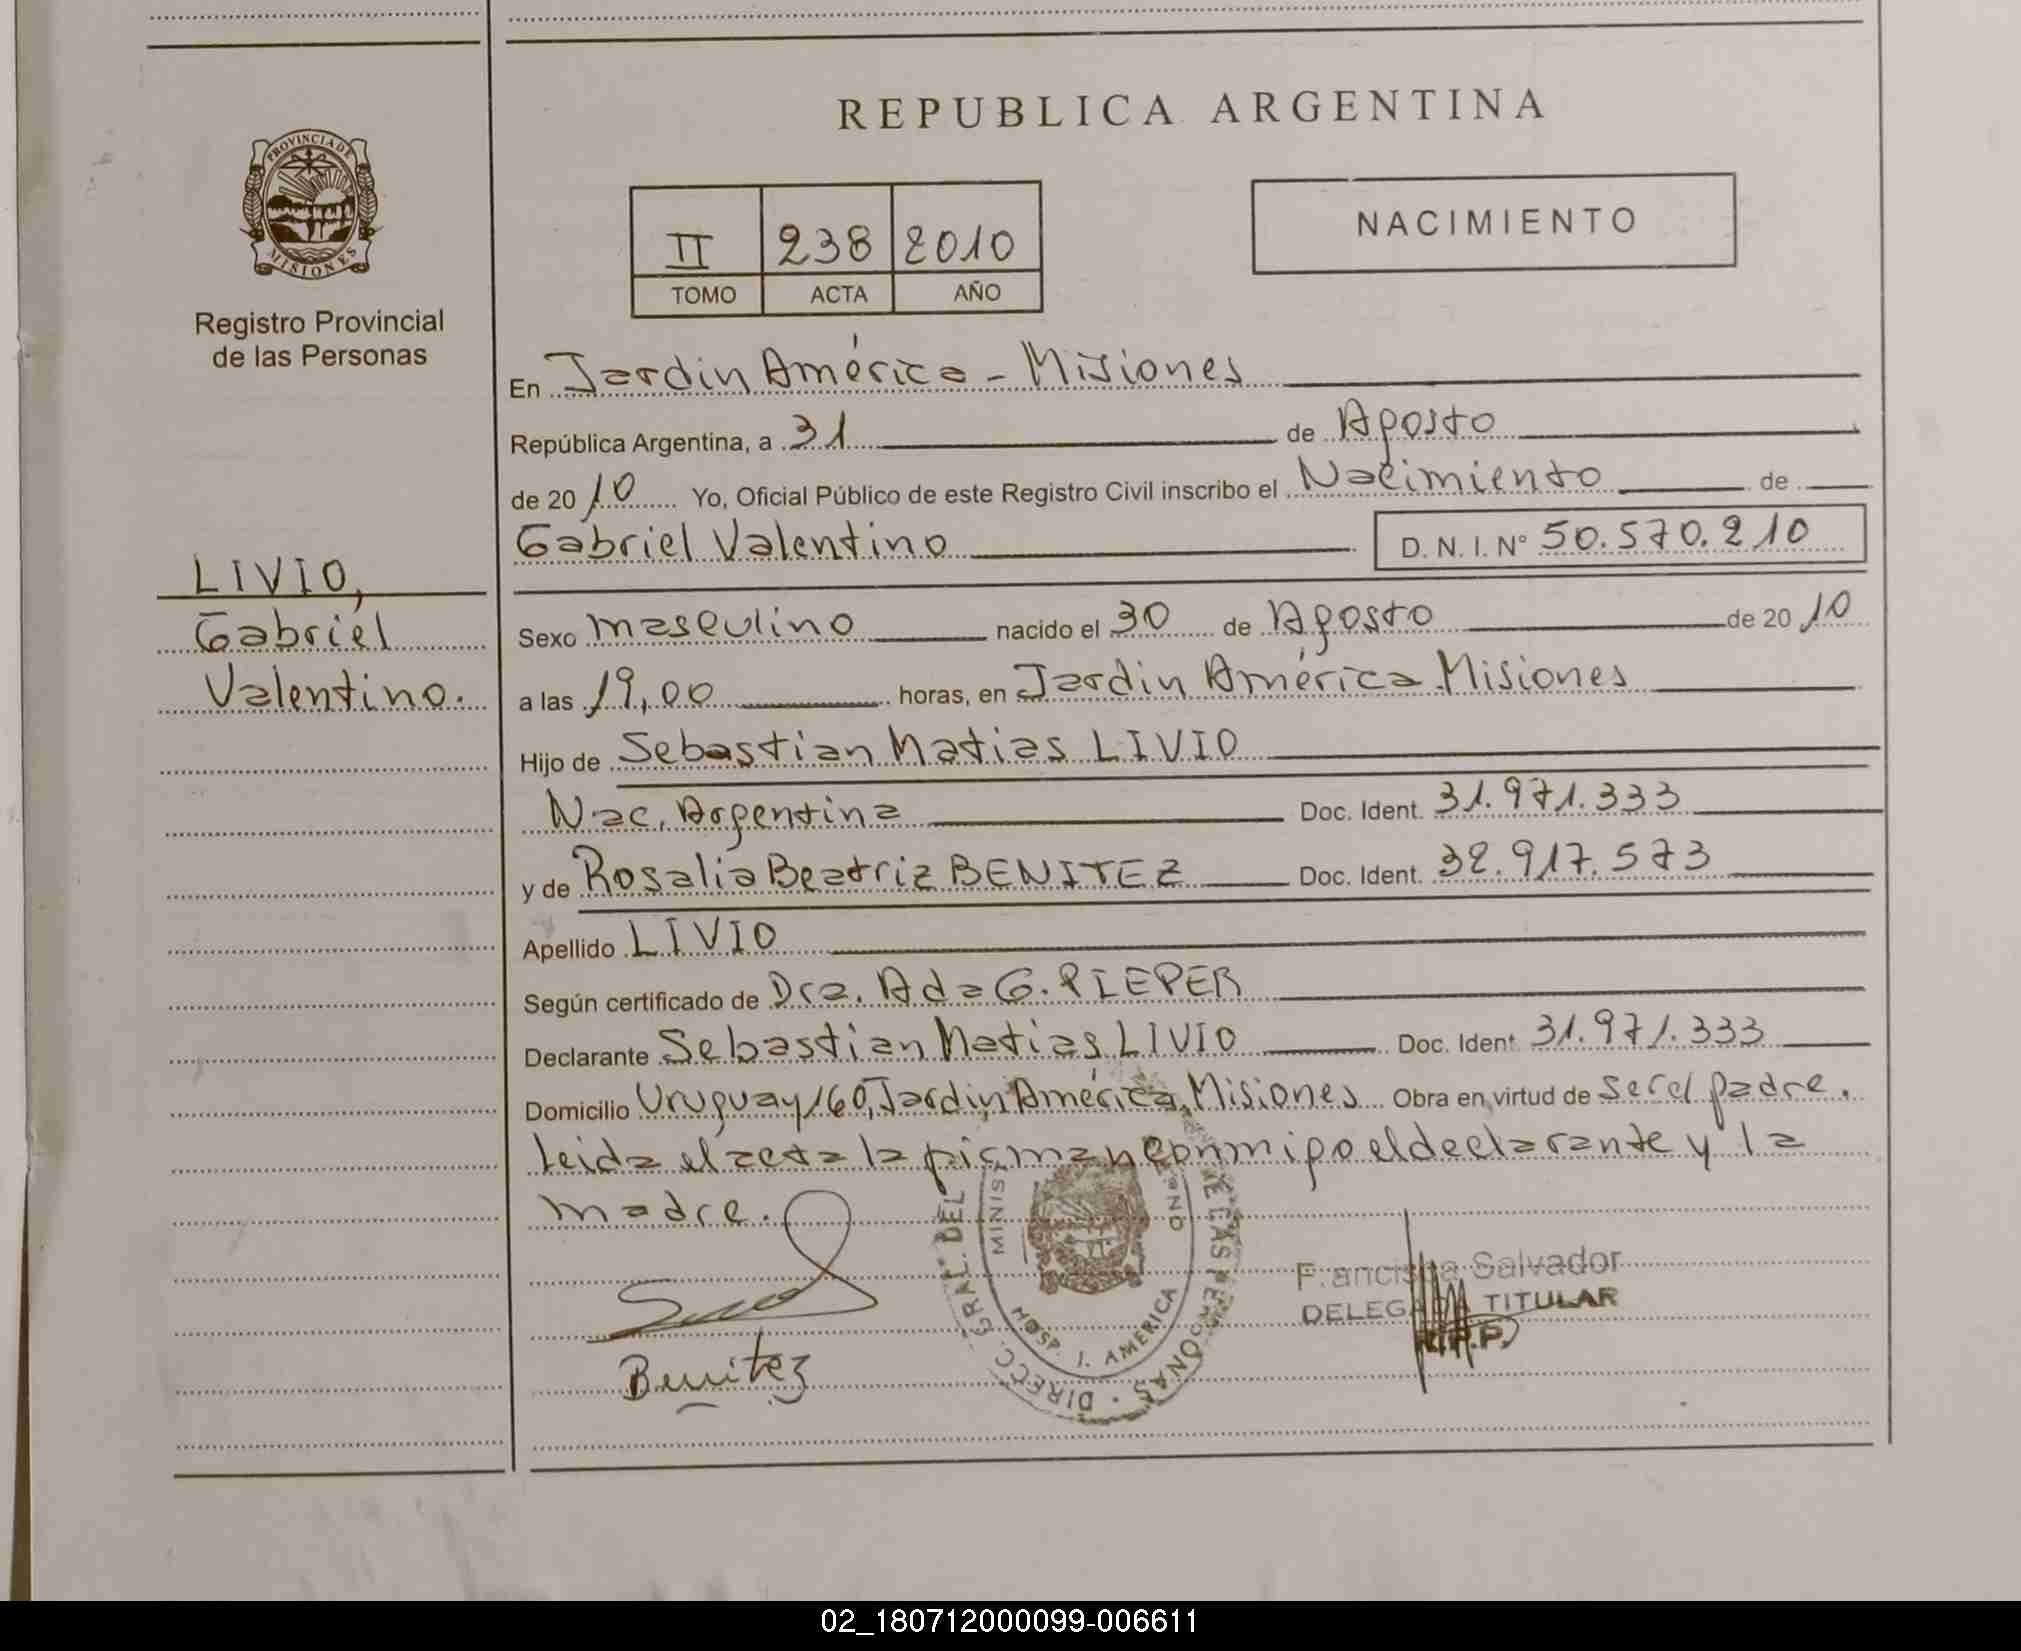 REPUBLICA ARGENTINA
PROVINCIA DE MISIONES
Registro Provincial
de las Personas
II 238 2010
TOMO ACTA AÑO
NACIMIENTO
En Jardin América - Misiones
República Argentina, a 31 de Agosto
de 2010 Yo, Oficial Público de este Registro Civil inscribo el Nacimiento de
Gabriel Valentino D. N. I. Nº 50.570.210
LIVIO,
Gabriel
Valentino.
Sexo masculino nacido el 30 de Agosto de 2010
a las 19,00 horas, en Jardin América Misiones
Hijo de Sebastian Matias LIVIO
Nac. Argentina Doc. Ident. 31.971.333
y de Rosalia Beatriz BENITEZ Doc. Ident. 32.917.573
Apellido LIVIO
Según certificado de Dra. Ada G. PIEPER
Declarante Sebastian Matias LIVIO Doc. Ident. 31.971.333
Domicilio Uruguay 160, Jardin América, Misiones Obra en virtud de ser el padre.
Leida el acta la firman conmigo el declarante y la
madre.
Benitez
DIRECC. GRAL. DEL PERSONAS
HOSP. J. AMERICA
Francisca Salvador
DELEGADA TITULAR
R.P.P.
02_180712000099-006611